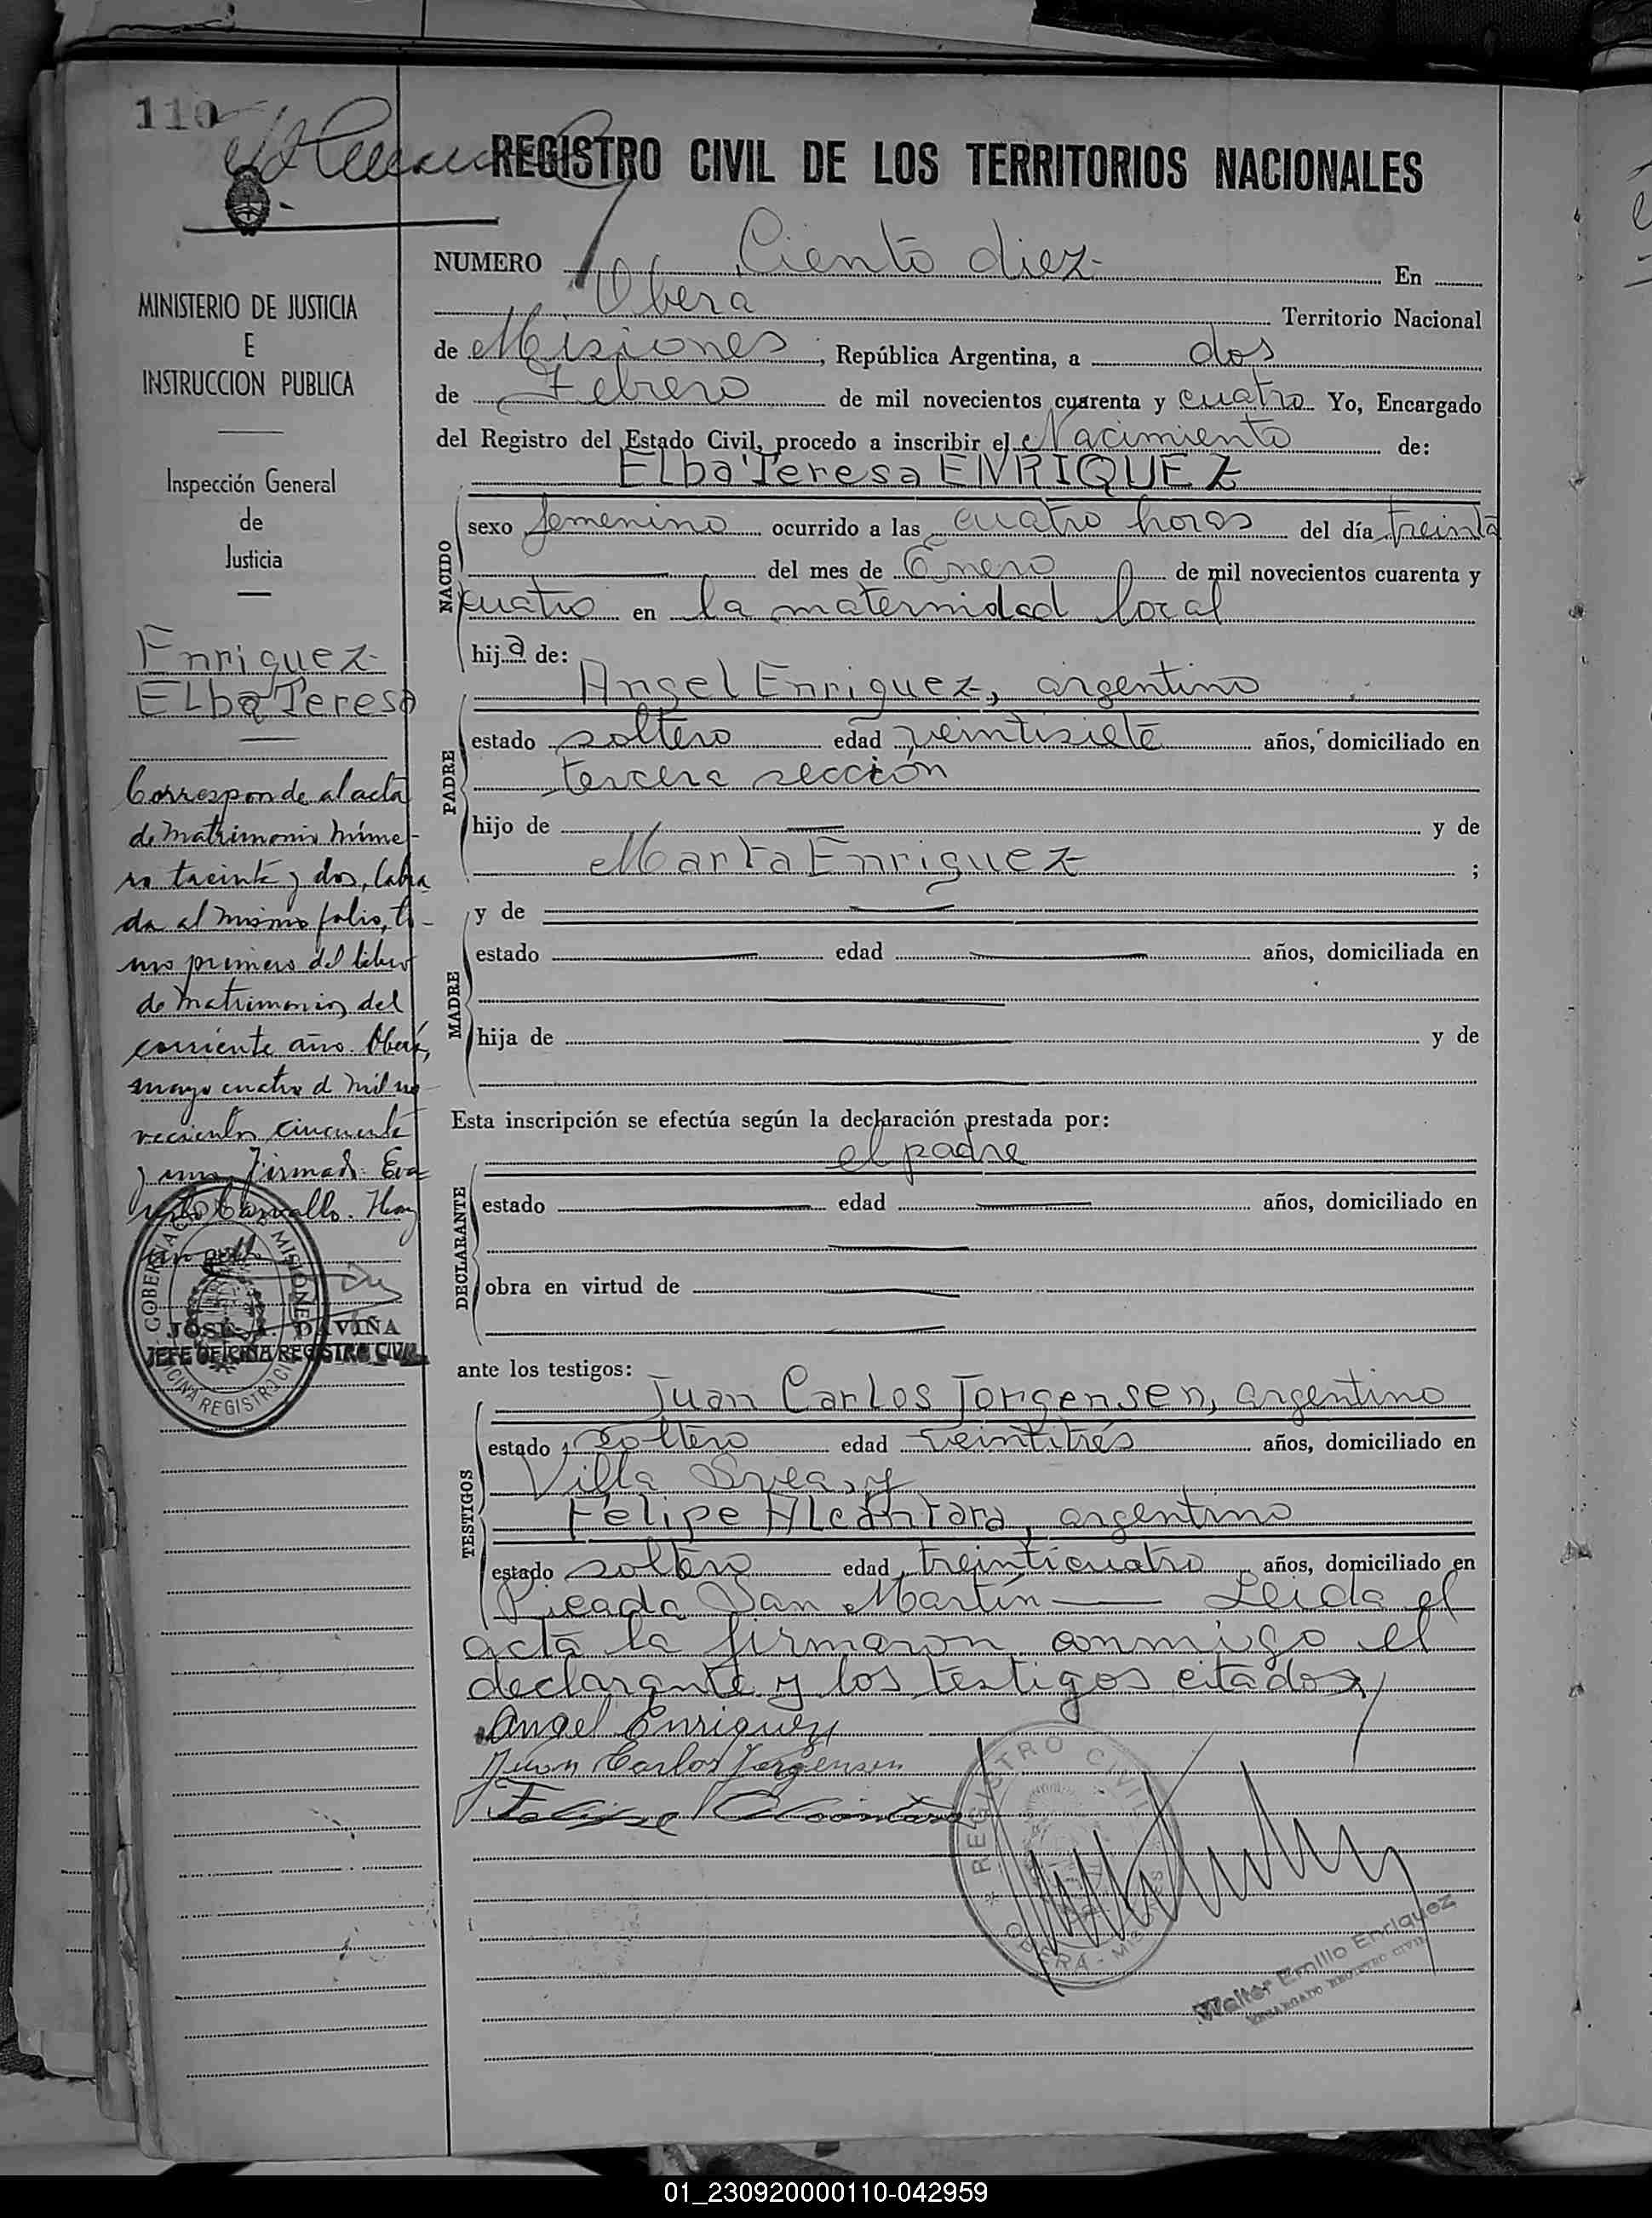 110
REGISTRO CIVIL DE LOS TERRITORIOS NACIONALES
MINISTERIO DE JUSTICIA
E
INSTRUCCION PUBLICA
Inspección General
de
Justicia
Enriquez
Elba Teresa
Corresponde al acta
de matrimonio núme-
ro treinta y dos, labra
da al mismo folio, to-
mo primero del libro
de matrimonios del
corriente año. Oberá,
mayo cuatro d mil no
vecientos cincuenta
y uno. Firmado: Eva
risto Carvallo. Hay
un sello
GOBERNACION MISIONES
OFICINA REGISTRO CIVIL
JOSE A. DAVIÑA
JEFE OFICINA REGISTRO CIVIL
NUMERO Ciento diez- En
Obera Territorio Nacional
de Misiones, República Argentina, a dos
de Febrero de mil novecientos cuarenta y cuatro Yo, Encargado
del Registro del Estado Civil, procedo a inscribir el Nacimiento de:
Elba Teresa ENRIQUEZ
NACIDO
sexo femenino ocurrido a las cuatro horas del día treinta
del mes de Enero de mil novecientos cuarenta y
cuatro en la maternidad local
hija de:
Angel Enriquez, argentino
PADRE
estado soltero edad veintisiete años, domiciliado en
tercera sección
hijo de y de
Marta Enriquez ;
MADRE
y de
estado edad años, domiciliada en
hija de y de
Esta inscripción se efectúa según la declaración prestada por:
el padre
DECLARANTE
estado edad años, domiciliado en
obra en virtud de
ante los testigos:
Juan Carlos Jorgensen, argentino
TESTIGOS
estado soltero edad veintitrés años, domiciliado en
Villa Svea, y
Felipe Alcántara, argentino
estado soltero edad treinticuatro años, domiciliado en
Picada San Martín — Leida el
acta la firmaron conmigo el
declarante y los testigos citados
Angel Enriquez
Juan Carlos Jorgensen
Felipe Alcantara
REGISTRO CIVIL
OBERA - MISIONES
Walter Emilio Enriquez
ENCARGADO REGISTRO CIVIL
01_230920000110-042959